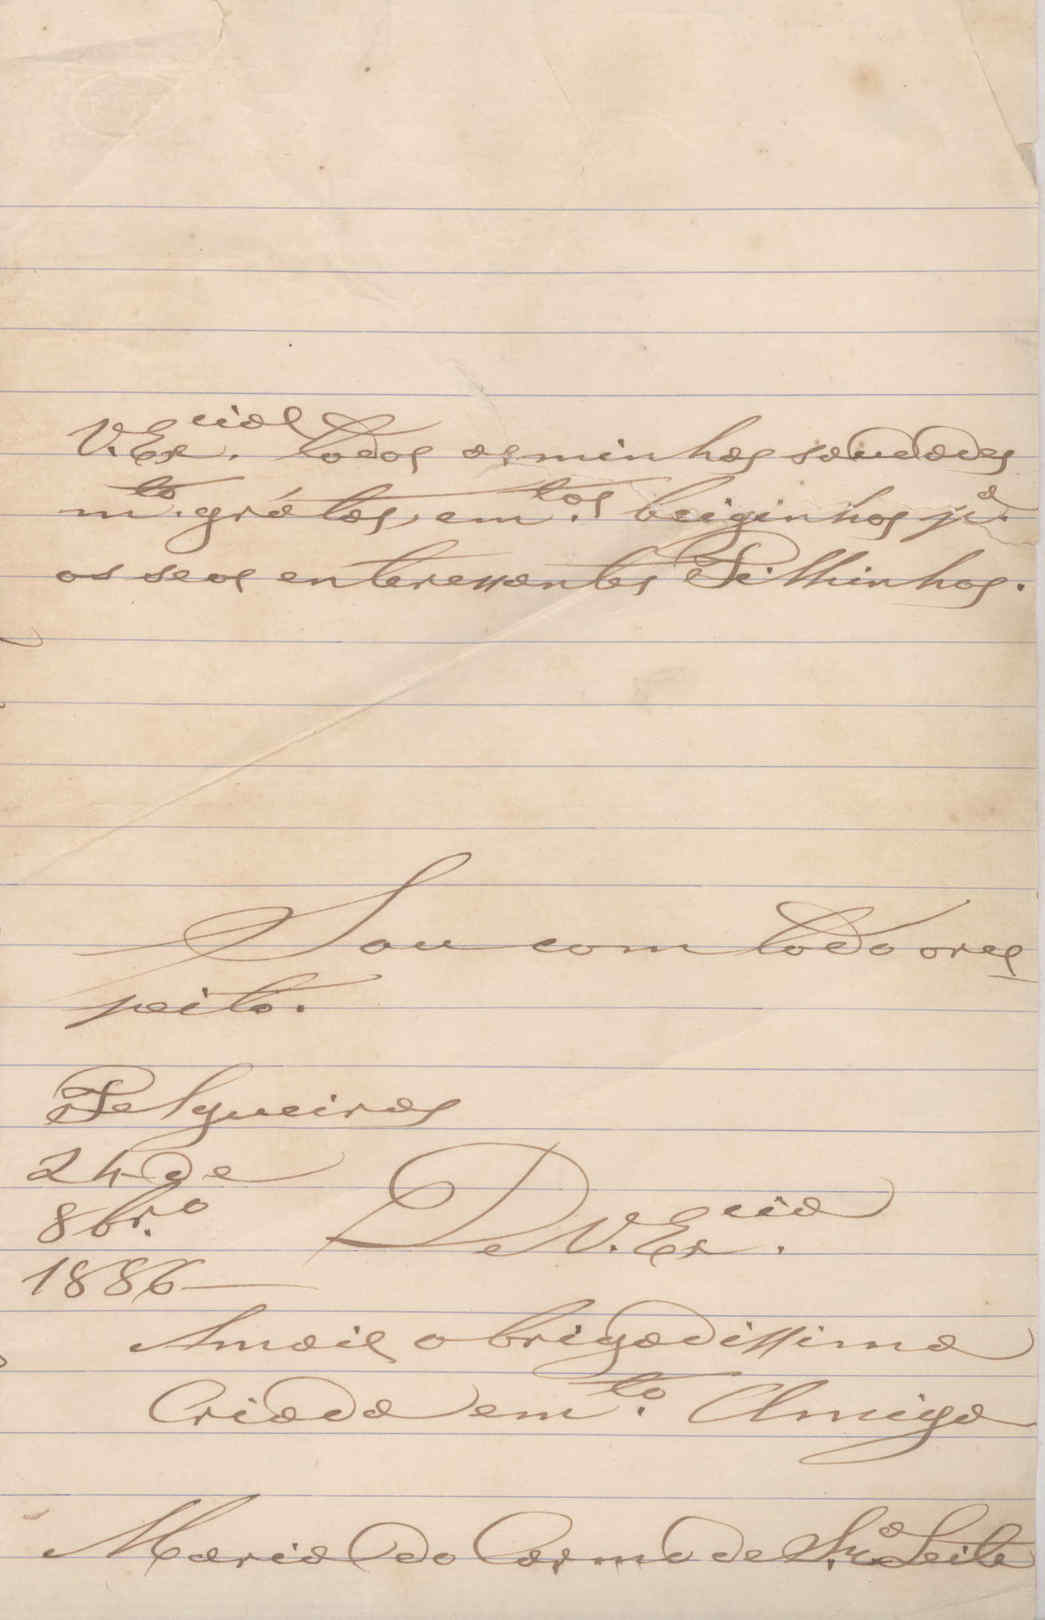 V. Ex.cias todos as minhas saudades
m.to grátas, e m.tos beiginhos p.a
os seos enteressantes Filhinhos.
Sou com todo o res
peito.
Felgueiras
24 de
8br.o
1886
De V. Ex.cia
A mais obrigadissima
Criada e m.to Amiga
Maria do Carmo de S.a Leite